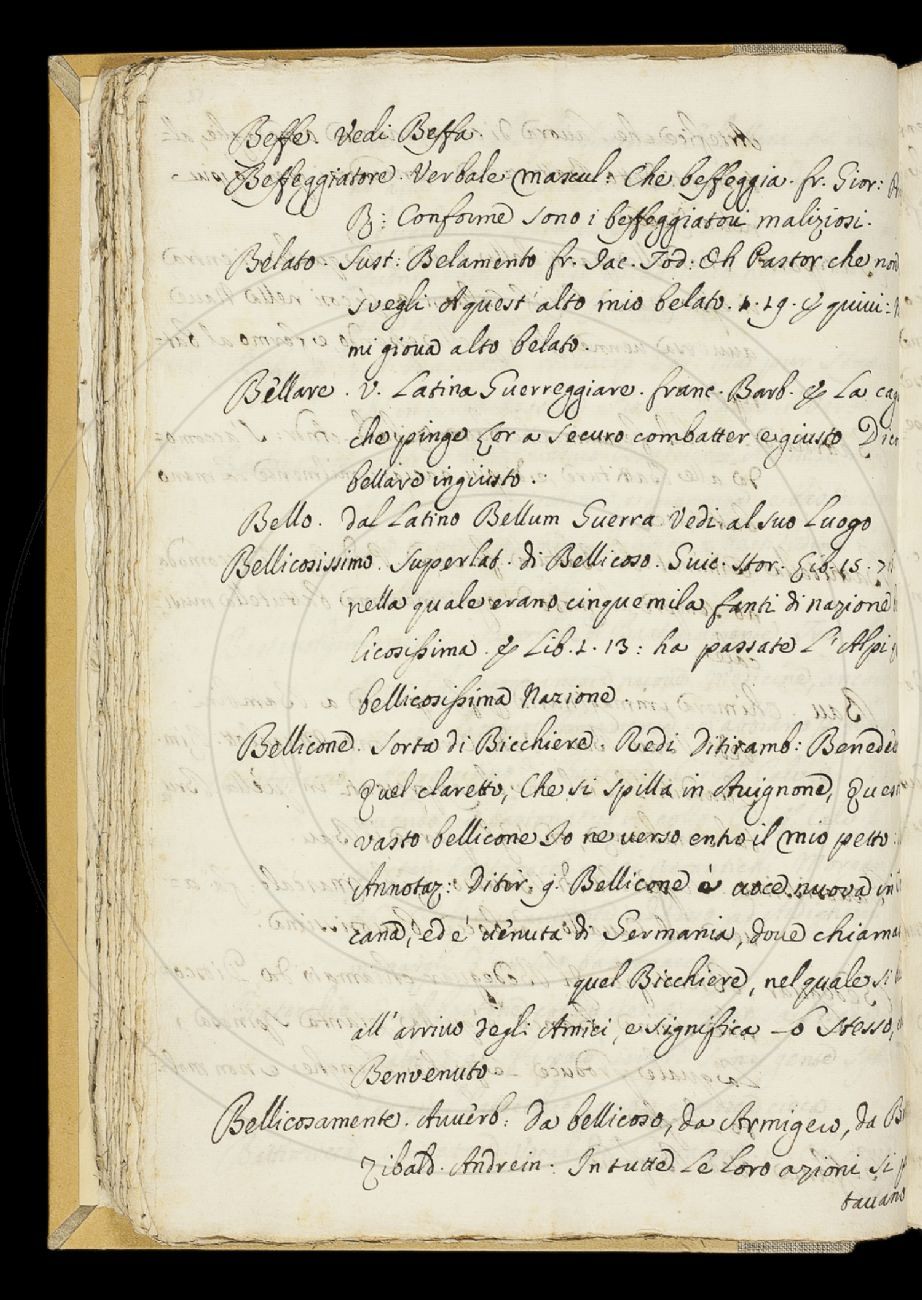 Beffe. Vedi Beffa.
Beffeggiatore. Verbale mascul: Che beffeggia. fr. Gior:
B: Conforme sono i beffeggiatori maliziosi.
Belato. Sust: Belamento fr. Jac. Tod: Oh Pastor che non
svegli A quest' alto mio belato. 1. 19. & quivi:
mi giova alto belato.
Bellare. V. Latina Guerreggiare. franc. Barb. & La
che pinge Lor a securo combatter e giusto
bellare ingiusto.
Bello. dal Latino Bellum Guerra Vedi al suo Luogo
Bellicosissimo. Superlat. di Bellicoso. Guic. Stor. Lib. 15.
nella quale erano cinquemila fanti di nazione
licosissima. & Lib. 1. 13: ha passate L' Alpi
bellicosissima Nazione.
Bellicone. Sorta di Bicchiere. Redi Ditiramb:
Quel claretto, Che si spilla in Avignone,
vasto bellicone Io ne verso entro il mio petto:
Annotaz: Ditir: Bellicone è voce nuova in
cana, ed è venuta di Germania, dove
quel Bicchiere, nel quale si
all' arrivo degli Amici, e significa lo stesso,
Benvenuto
Bellicosamente. Avverb: da bellicoso, da Armigero, da
Zibald. Andrein: In tutte Le Loro azioni si
tavano